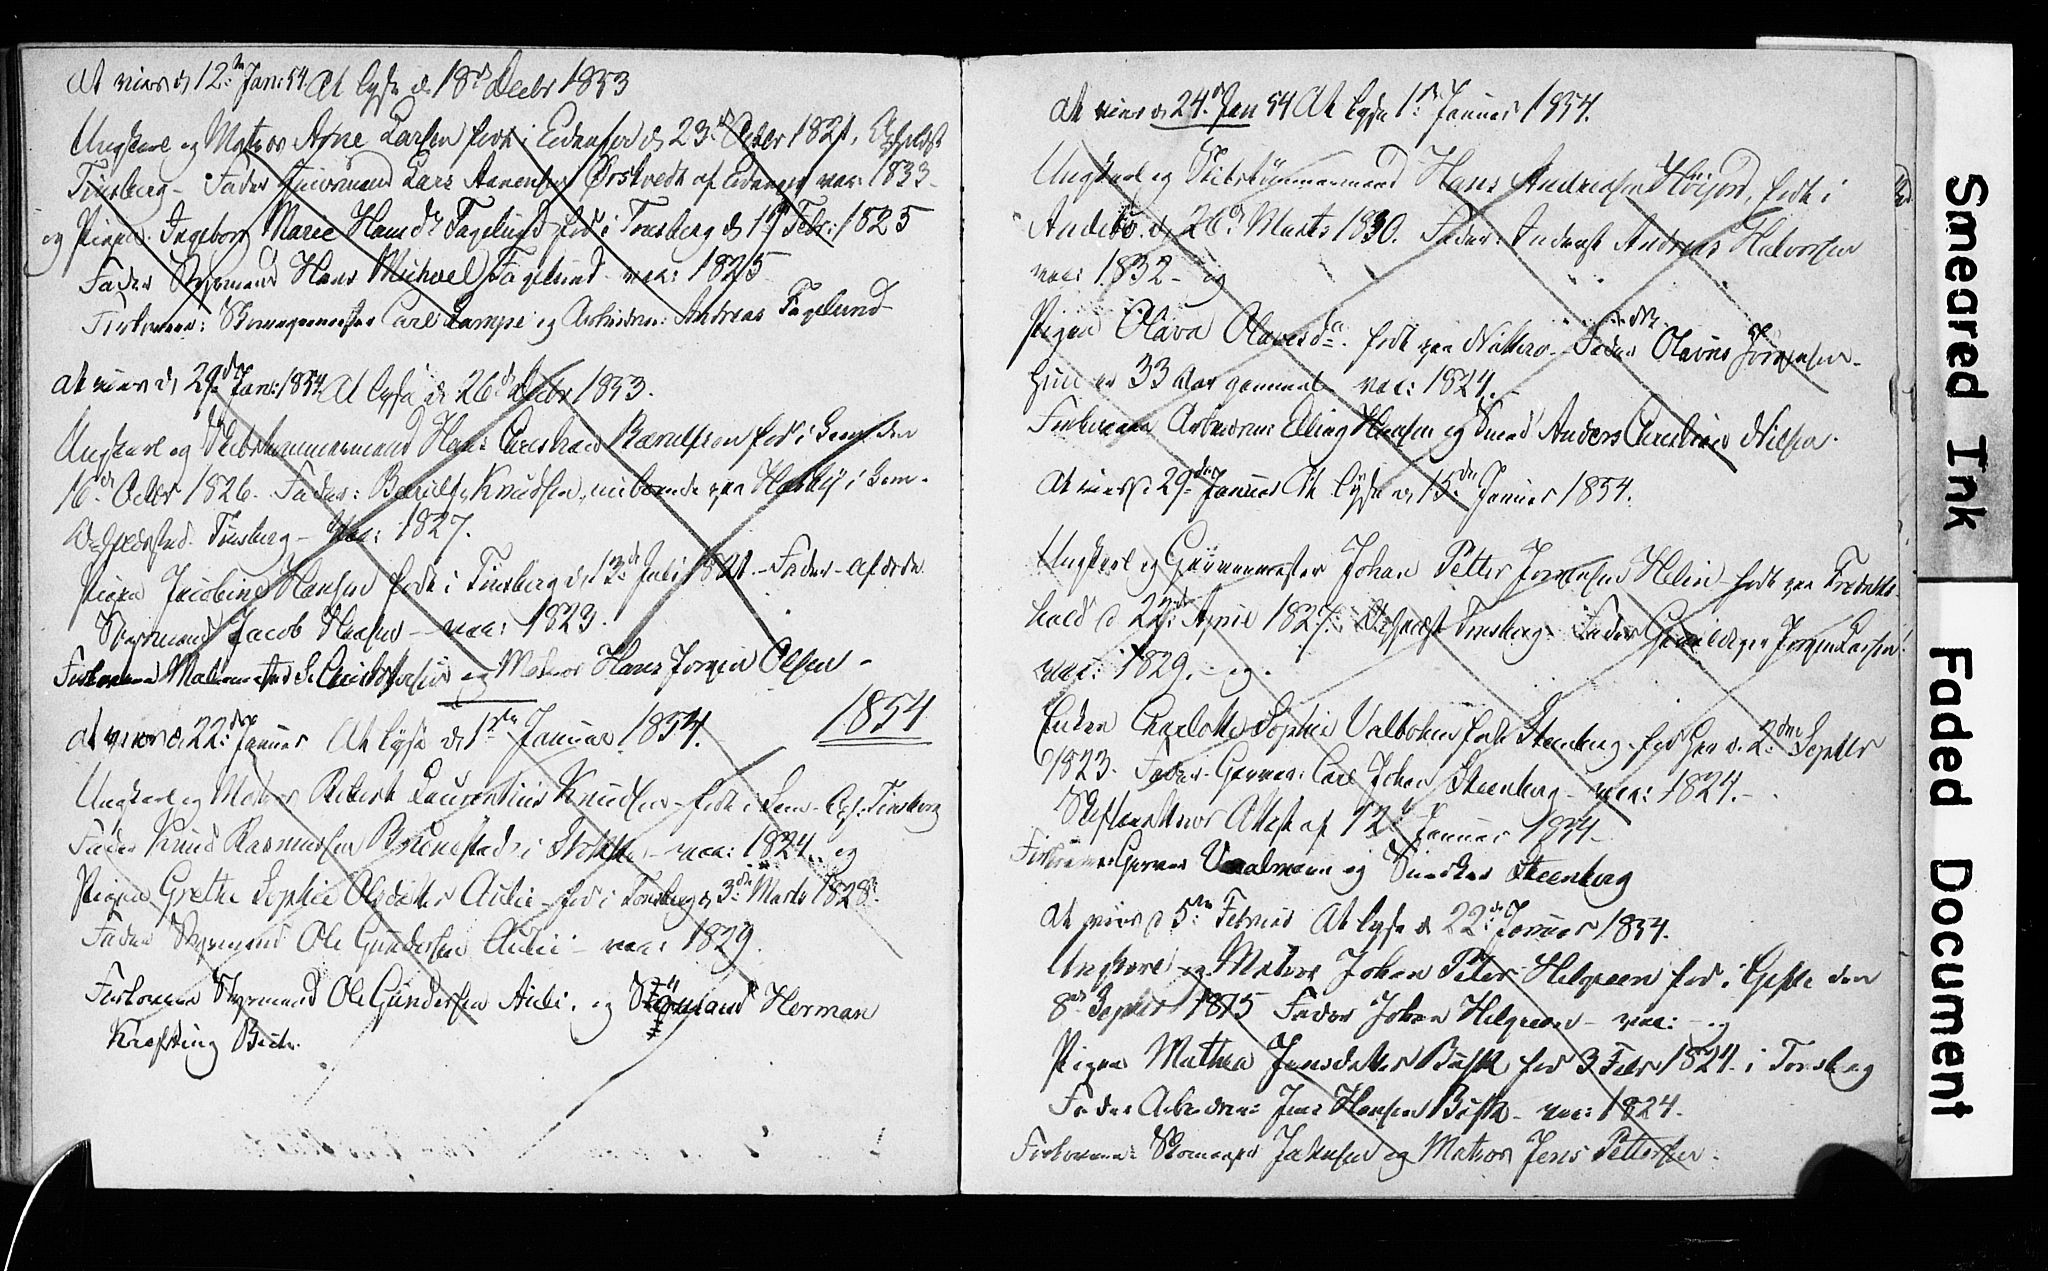 At vies d 12te Jan: 54 At lyse d. 18d Decbr 1853
Ungkarl og Matros Arne Larsen født i Eidanger d 23d 1821,
Tønsberg - Fader Lars Aanensen Ørstvedt af Eidanger vac: 1833
og Pigen Ingeborg Marie Hansdr Fagelund fød i Tønsberg d 19 Febr: 1825
Fader Styrmand Hans Michael Fagelund vac: 1825
Forlovere: Skomagermester Carl Lampe og Arbeidsm: Andreas Fagelund
At vies d 29de Jan: 1854 At lyse d. 26d Decbr 1853.
Ungkarl og Skibstømmermand Hans Christian Bærulfsen fød i Sem den
16de Octbr 1826. Fader: Bærulf Knudsen, iboende paa i Sem.
Opholdssted Tønsberg - Vac: 1827.
Pigen Jacobine Hansen født i Tønsberg d. 13de Juli 1821 - Fader afdøde
Styrmand Jacob Hansen - vac: 1823.
Forlovere og Matros Hans Jørgen Olsen -
1854
At vies d. 22de Januar At lyse d 1ste Januar 1854.
Ungkarl og Matros Robert Laurentius Knudsen - født i Sem - Oph: Tønsberg
Fader Knud Rasmussen Brunestad i Stokke - vac: 1824. og
Pigen Grethe Sophie Olsdatter Aulie - fød i Tønsberg d 3de Marts 1828.
Fader Styrmand Ole Gundersen Aulie - vac: 1829.
Forlovere Styrmand Ole Gundersen Aulie. og Styrmand Herman
Krefting Bull.
At vies d 24de Jan 54 At lyse 1ste Januar 1854.
Ungkarl og Skibstømmermand Hans Andreasen Høijord, født i
Andebu. d 26d Marts 1830. Fader: Andreas Halvorsen
vac: 1832 - og
Pigen Olava Olavesdtr. født paa Nøtterø. Fader Olaves Jørgensen -
hun er 33 Aar gammel vac: 1824.
Forlovere Arbeidsm: Elling Hansen og Smed Anders Christian Nilsen.
At vies d 29de Januar At lyse d 15de Januar 1854.
Ungkarl og Garvermester Johan Petter Jørgensen Helin - født paa Fredriks
hald d 22de April 1827. Opholdst Tønsberg. Fader Jørgen Larsen
vac: 1829. - og.
Enken Charlotte Sophie født Steenberg, fød her d. 2den Septbr
1823. Fader. Garver: Carl Johan Steenberg - vac: 1824. -
Skifterettens Attest af 12te Januar 1854 -
Forlovere Garver og Snedker Steenberg
At vies d 5te Februar At lyse d 22de Januar 1854.
Ungkarl og Matros Johan Peter Helgreen fød i Gefle den
8de Septbr 1815 Fader Johan Helgreen - vac: - og
Pigen Mathea Jensdatter Busk fød 3 Febr 1824. i Tønsberg
Fader Arbeidsm: Jens Hansen Busk - vac: 1824.
Forlovere: Skomager Jakobsen og Matros Jens Pettersen.
Smeared Ink
Faded Document